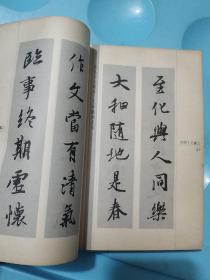 至化與人同樂
大和隨地是春
作文當有清氣
臨事終期虛懷